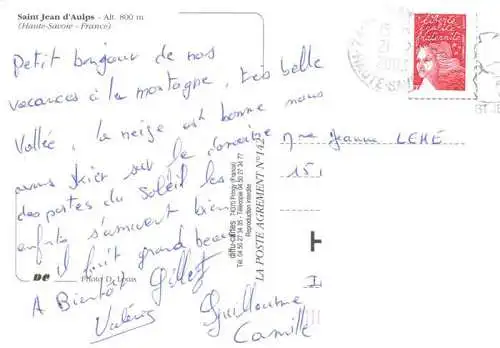 Saint Jean d'Aulps - Alt. 800 m
(Haute-Savoie - France)
Petit bonjour de nos
vacances à la montagne, très belle
Vallée, la neige est bonne nous
avons skier sur le domaine
des portes du Soleil les
enfants s'amusent bien
il fait grand beau
A Bientôt
Gilles
Valérie
Guillaume
Camille
Photo D. Louis
diffu-cartes 74370 Pringy (France)
Tél. 04 50 27 34 35 - Télécopie 04 50 27 34 77
Reproduction interdite
LA POSTE AGREMENT N° 142
liberté
égalité
fraternité
Mme Jeanne LEMÉ
15